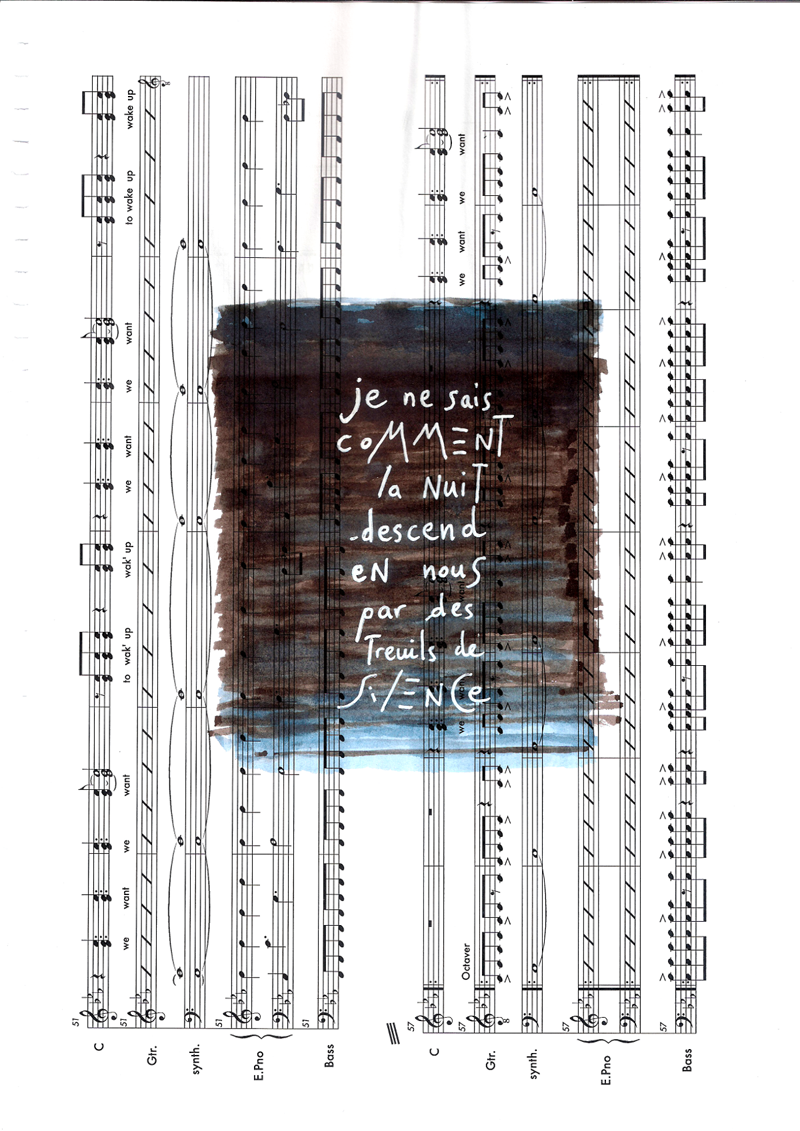 je ne sais
coMMENT
la NuiT
descend
eN nous
par des
Treuils de
SilENCe
wake up
to wake up
want
we
want
we
wak' up
to wak' up
want
we
want
we
51
51
51
51
C
Gtr.
synth.
E.Pno
Bass
want
we
want
we
we
Octaver
57
57
57
57
8
C
Gtr.
synth.
E.Pno
Bass